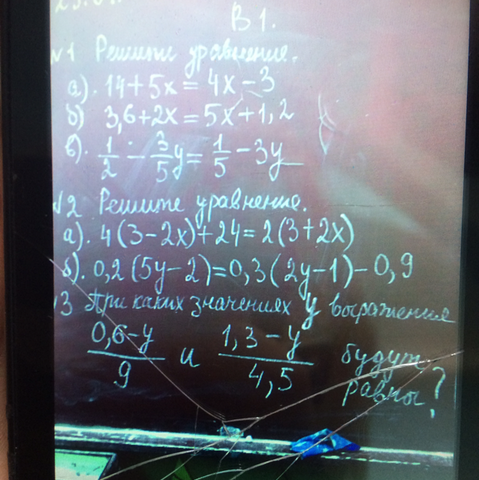 В 1.
№1 Решите уравнение.
а). 14+5x = 4x-3
б) 3,6+2x = 5x+1,2
в). 1/2 - 3/5y = 1/5 - 3y
№2 Решите уравнение.
а). 4(3-2x)+24=2(3+2x)
б). 0,2(5y-2)=0,3(2y-1)-0,9
3 При каких значениях y выражения
0,6-y/9 и 1,3-y/4,5 будут равны?